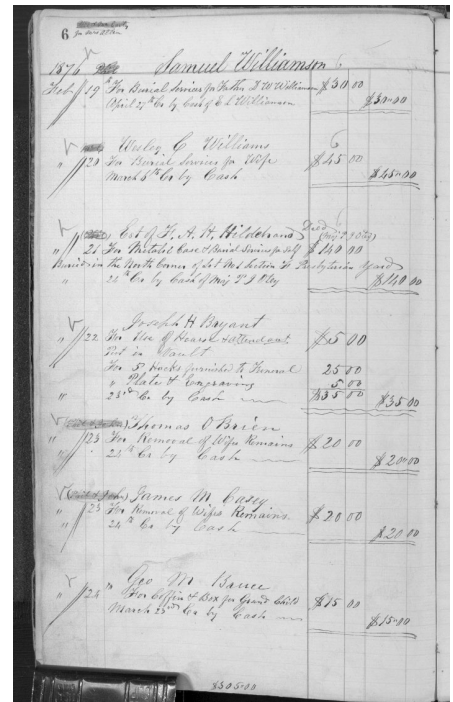 6
1876 Samuel Williamson
Feb 19th For Burial Services for Father D W Williamson $30 00
April 27th Cr by Cash of E L Williamson $30.00
Wesley C Williams
" 20 For Burial Services for Wife $45 00
March 6th Cr by Cash $45.00
Est of H. A. H. Hildebrand
" 21 For Metalic Case & Burial Services for Self $140 00
Buried in the North Corner of Lot No 1 Section F Presbyterian Yard
" 24th Cr by Cash of $140 00
Joseph H Bryant
" 22 For Use of Hearse & Attendant $5 00
Put in Vault
For 5 Hacks furnished to Funeral 25 00
" Plate & Engraving 5 00
" 25th Cr by Cash $35 00 $35 00
Thomas O'Brien
" 23 For Removal of Wifes Remains $20 00
" 25th Cr by Cash $20.00
James M. Casey
" 23 For Removal of Wifes Remains $20 00
" 24th Cr by Cash $20 00
Geo M. Bruce
" 24th For Coffin & Box for Grand Child $15 00
March 25th Cr by Cash $15.00
$305.00